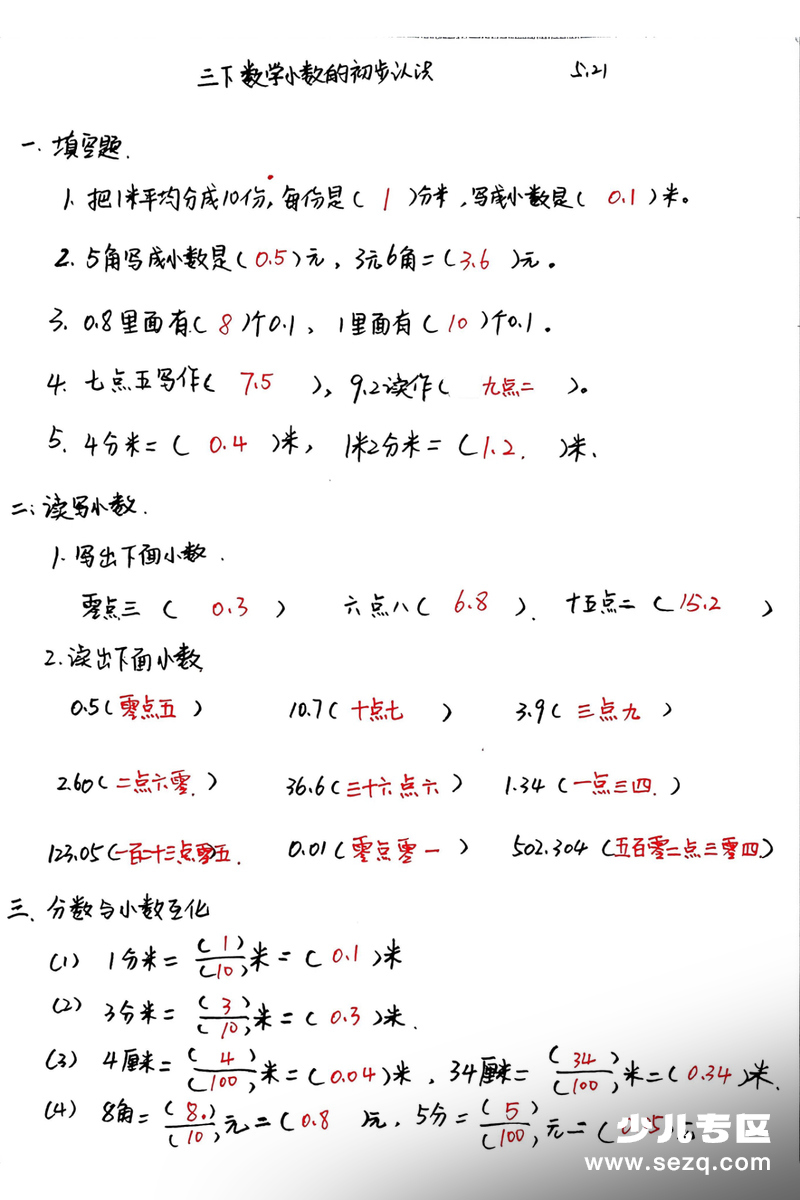 三下数学小数的初步认识 5.21
一. 填空题.
1. 把1米平均分成10份,每份是( 1 )分米,写成小数是( 0.1 )米。
2. 5角写成小数是(0.5)元,3元6角=(3.6 )元。
3. 0.8里面有( 8 )个0.1, 1里面有( 10 )个0.1。
4. 七点五写作( 7.5 ), 9.2读作( 九点二 )。
5. 4分米=( 0.4 )米, 1米2分米=(1.2. )米.
二: 读写小数.
1. 写出下面小数.
零点三 ( 0.3 ) 六点八( 6.8 ). 十五点二 ( 15.2 )
2. 读出下面小数
0.5(零点五 ) 10.7( 十点七 ) 3.9( 三点九 )
2.60(二点六零.) 36.6(三十六点六 ) 1.34 (一点三四. )
123.05(一百二十三点零五. 0.01(零点零一 ) 502.304 (五百零二点三零四.)
三、分数与小数互化
(1) 1分米= ( 1 )/(10) 米=( 0.1 )米
(2) 3分米= ( 3 )/(10) 米=( 0.3 )米.
(3) 4厘米= ( 4 )/(100) 米=(0.04)米, 34厘米= ( 34 )/(100) 米=(0.34)米.
(4) 8角= ( 8. )/(10) 元=( 0.8 )元, 5分= ( 5 )/(100) 元=(
少儿专区
www.sezq.com